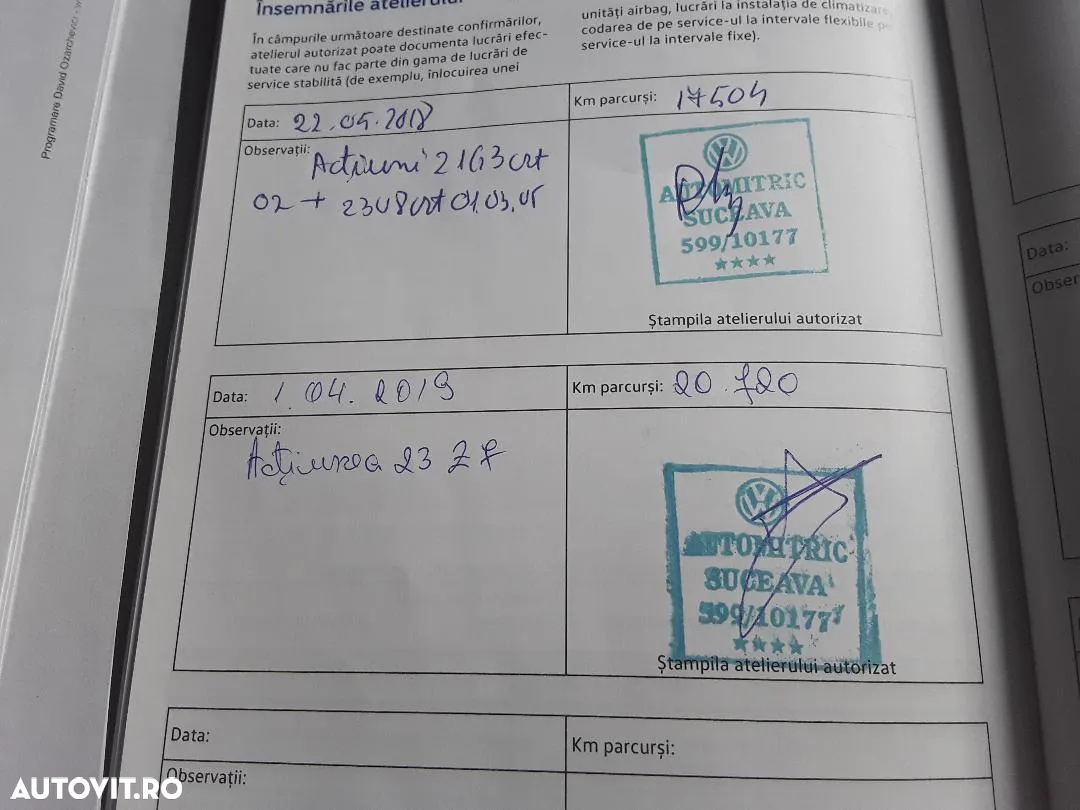 Programare David Ozarchevici - w
Însemnările atelierului
În câmpurile următoare destinate confirmărilor,
atelierul autorizat poate documenta lucrări efec-
tuate care nu fac parte din gama de lucrări de
service stabilită (de exemplu, înlocuirea unei
unități airbag, lucrări la instalația de climatizare
codarea de pe service-ul la intervale flexibile pe
service-ul la intervale fixe).
Data: 22.05.2018
Km parcurși: 17504
Observații: Acțiuni 21G3 crt
02 + 23U8 crt 01.03.05
VW
AUTOMITRIC
SUCEAVA
599/10177
★★★★
Ștampila atelierului autorizat
Data: 1.04.2019
Km parcurși: 20.720
Observații:
Acțiunea 23 Z7
VW
AUTOMITRIC
SUCEAVA
599/10177
★★★★
Ștampila atelierului autorizat
Data:
Km parcurși:
Observații:
Data:
Obser
AUTOVIT.RO